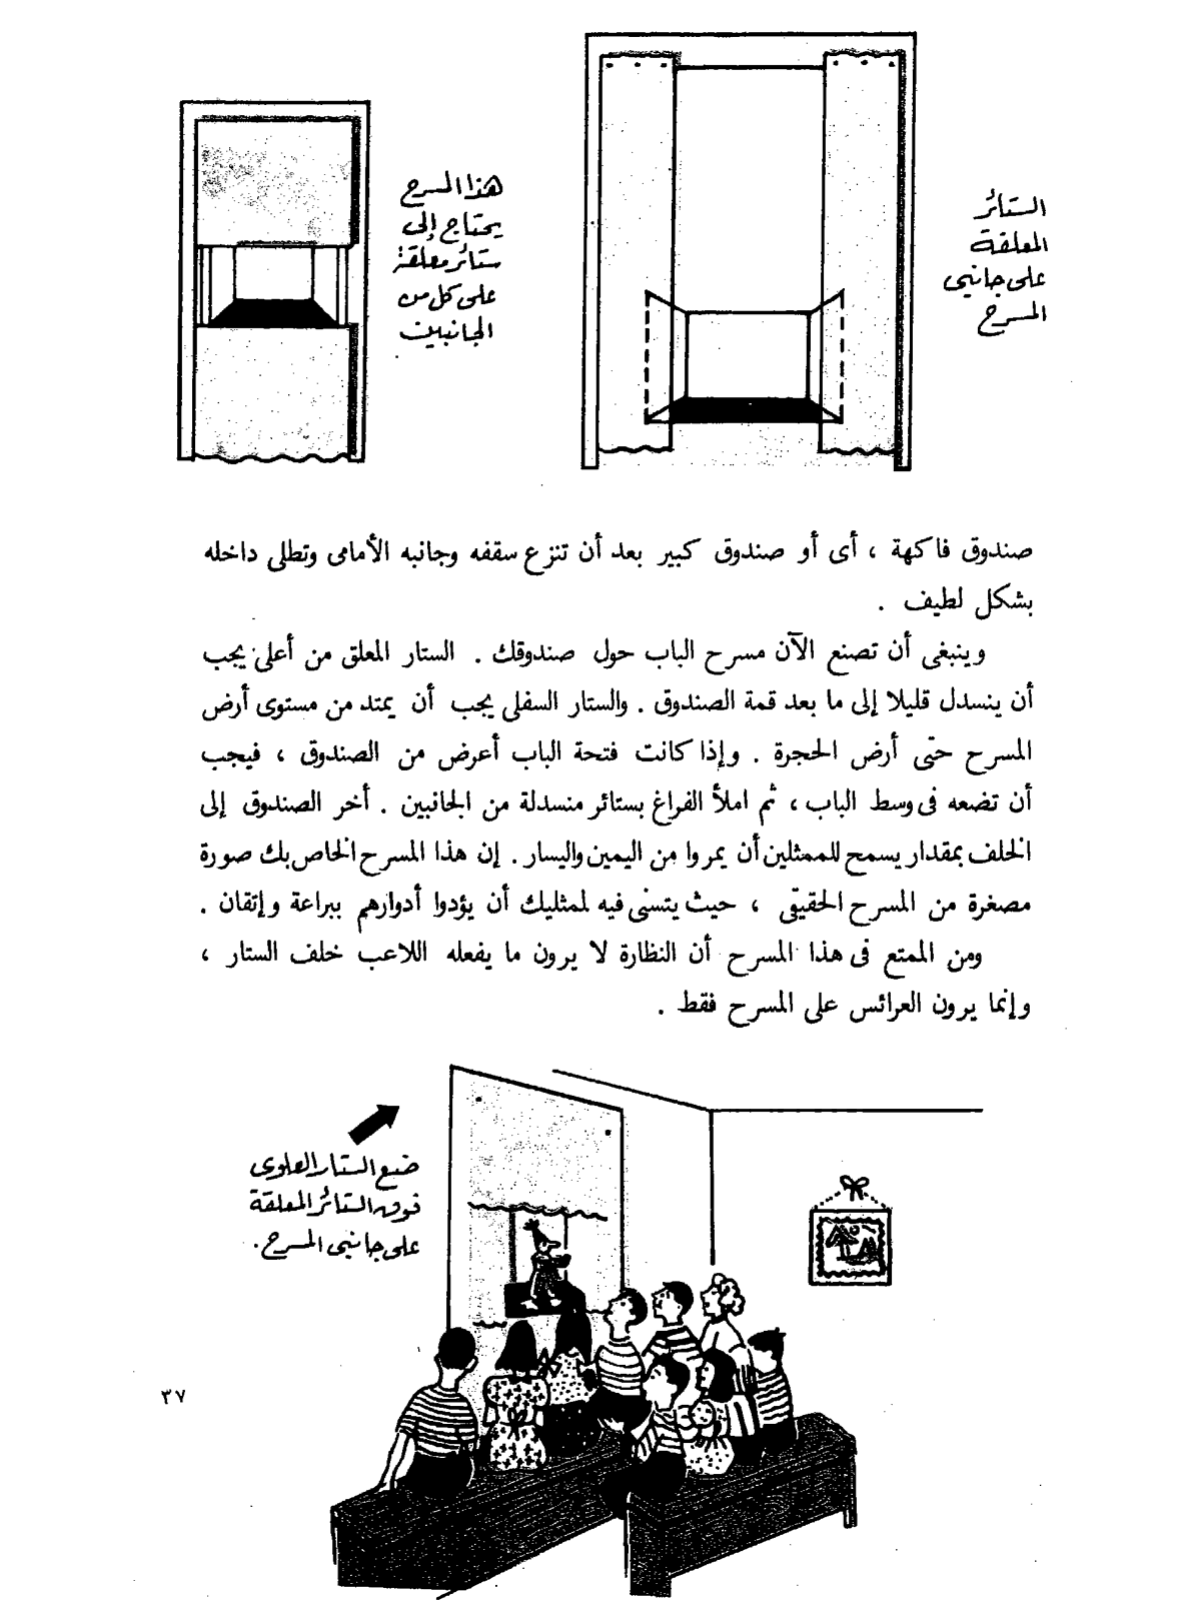 الستائر
المعلقة
على جانبي
المسرح
هذا المسرح
يحتاج إلى
ستائر معلقة
على كل من
الجانبين
صندوق فاكهة ، أى أو صندوق كبير بعد أن تنزع سقفه وجانبه الأمامى وتطلى داخله
بشكل لطيف .
وينبغى أن تصنع الآن مسرح الباب حول صندوقك . الستار المعلق من أعلى يجب
أن ينسدل قليلا إلى ما بعد قمة الصندوق . والستار السفلى يجب أن يمتد من مستوى أرض
المسرح حتى أرض الحجرة . وإذا كانت فتحة الباب أعرض من الصندوق ، فيجب
أن تضعه فى وسط الباب ، ثم املأ الفراغ بستائر منسدلة من الجانبين . أخر الصندوق إلى
الخلف بمقدار يسمح للممثلين أن يمروا من اليمين واليسار . إن هذا المسرح الخاص بك صورة
مصغرة من المسرح الحقيقى ، حيث يتسنى فيه لممثليك أن يؤدوا أدوارهم ببراعة وإتقان .
ومن الممتع فى هذا المسرح أن النظارة لا يرون ما يفعله اللاعب خلف الستار ،
وإنما يرون العرائس على المسرح فقط .
ضع الستار العلوى
فوق الستائر المعلقة
على جانبى المسرح .
٣٧